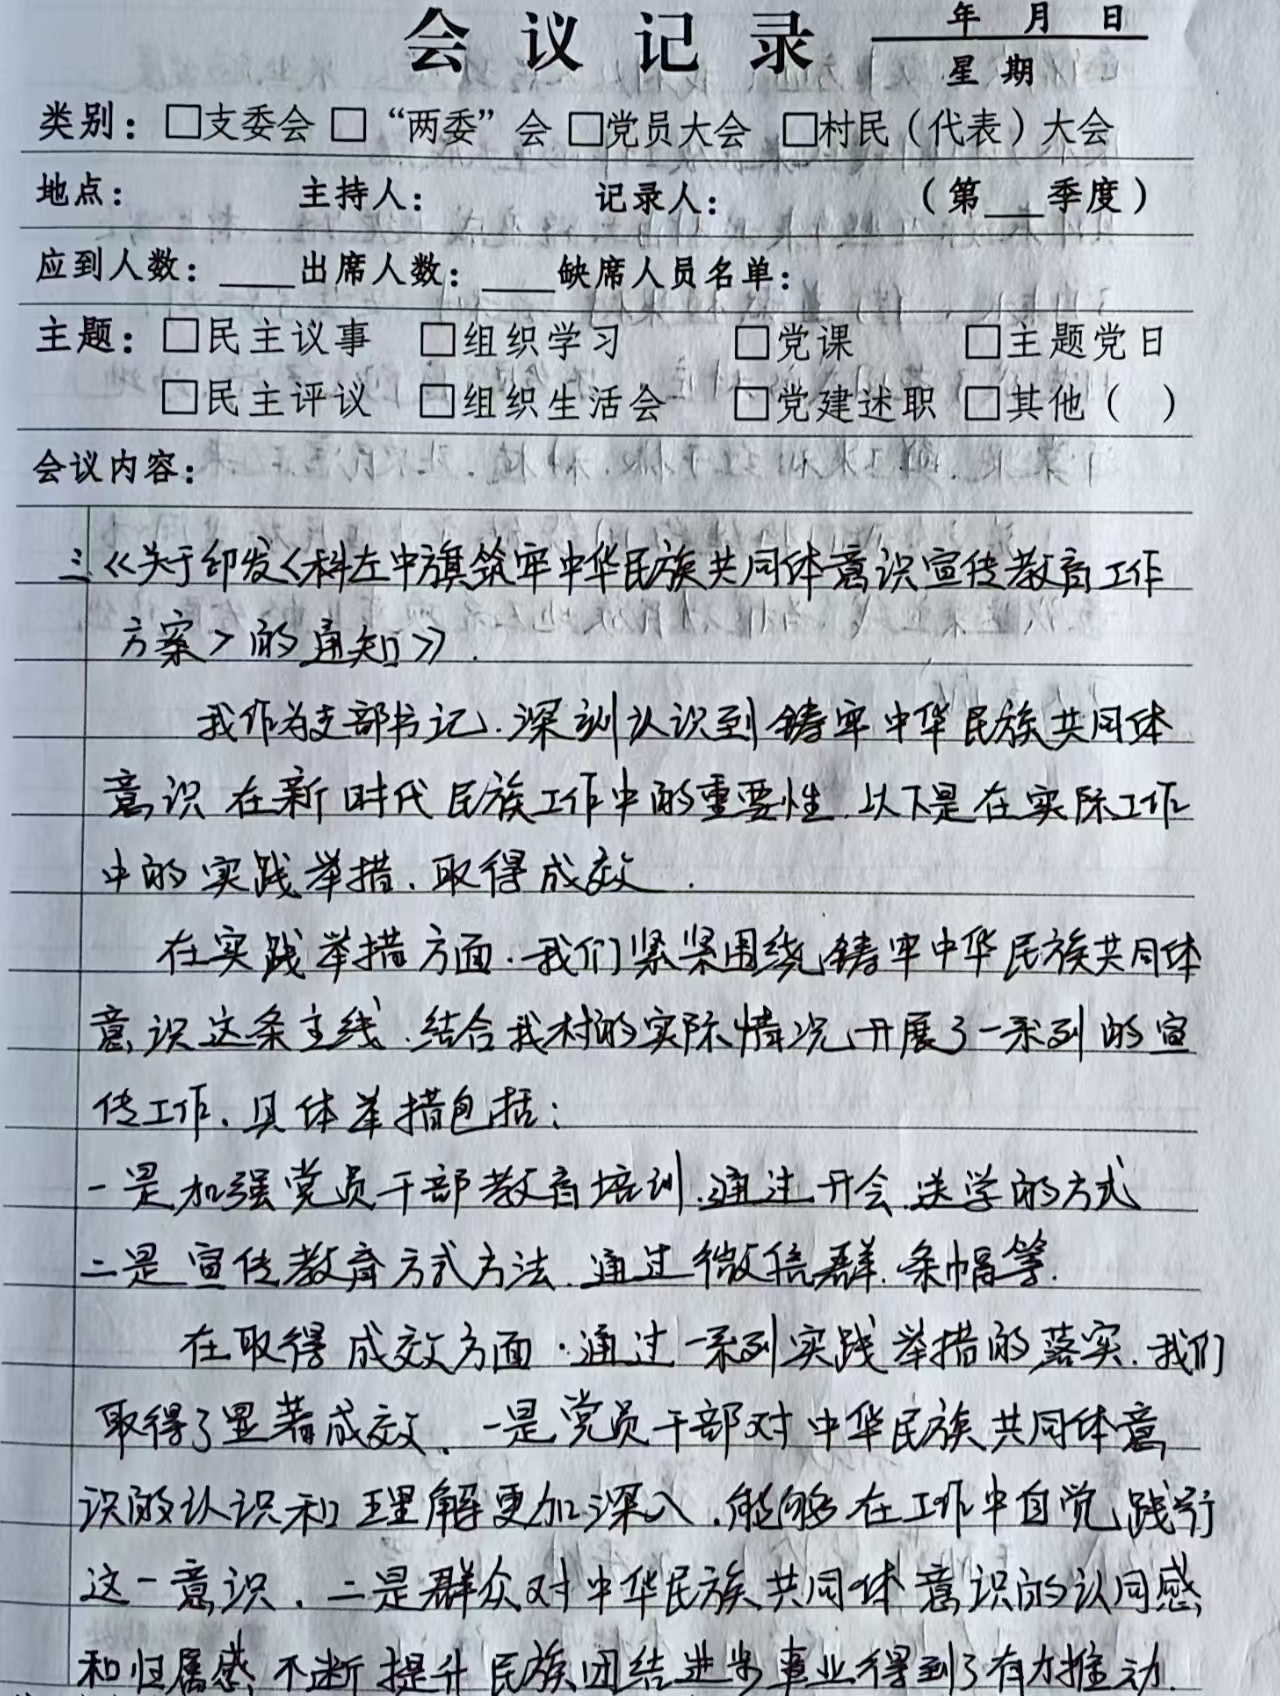 会议记录 年 月 日
星期
类别：□支委会 □“两委”会 □党员大会 □村民（代表）大会
地点： 主持人： 记录人： （第___季度）
应到人数：___出席人数：___缺席人员名单：
主题：□民主议事 □组织学习 □党课 □主题党日
□民主评议 □组织生活会 □党建述职 □其他（ ）
会议内容：
三《关于印发<科左中旗筑牢中华民族共同体意识宣传教育工作
方案>的通知》.
我作为支部书记.深刻认识到铸牢中华民族共同体
意识在新时代民族工作中的重要性.以下是在实际工作
中的实践举措、取得成效.
在实践举措方面.我们紧紧围绕铸牢中华民族共同体
意识这条主线.结合我村的实际情况,开展了一系列的宣
传工作、具体举措包括:
一是加强党员干部教育培训.通过开会.送学的方式
二是宣传教育方式方法.通过微信群.条幅等.
在取得成效方面.通过一系列实践举措的落实.我们
取得了显著成效、一是党员干部对中华民族共同体意
识的认识和理解更加深入.能够在工作中自觉践行
这一意识、二是群众对中华民族共同体意识的认同感
和归属感不断提升民族团结进步事业得到了有力推动.